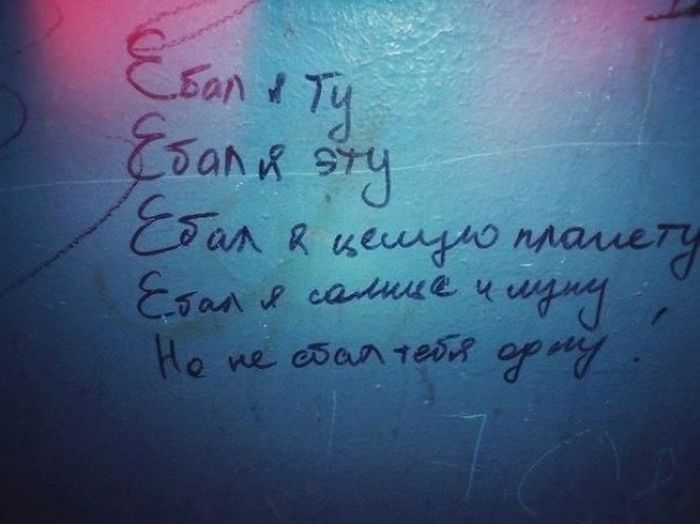 Ебал я Ту
Ебал я эту
Ебал я целую планету
Ебал я солнце и луну
Но не ебал тебя одну!